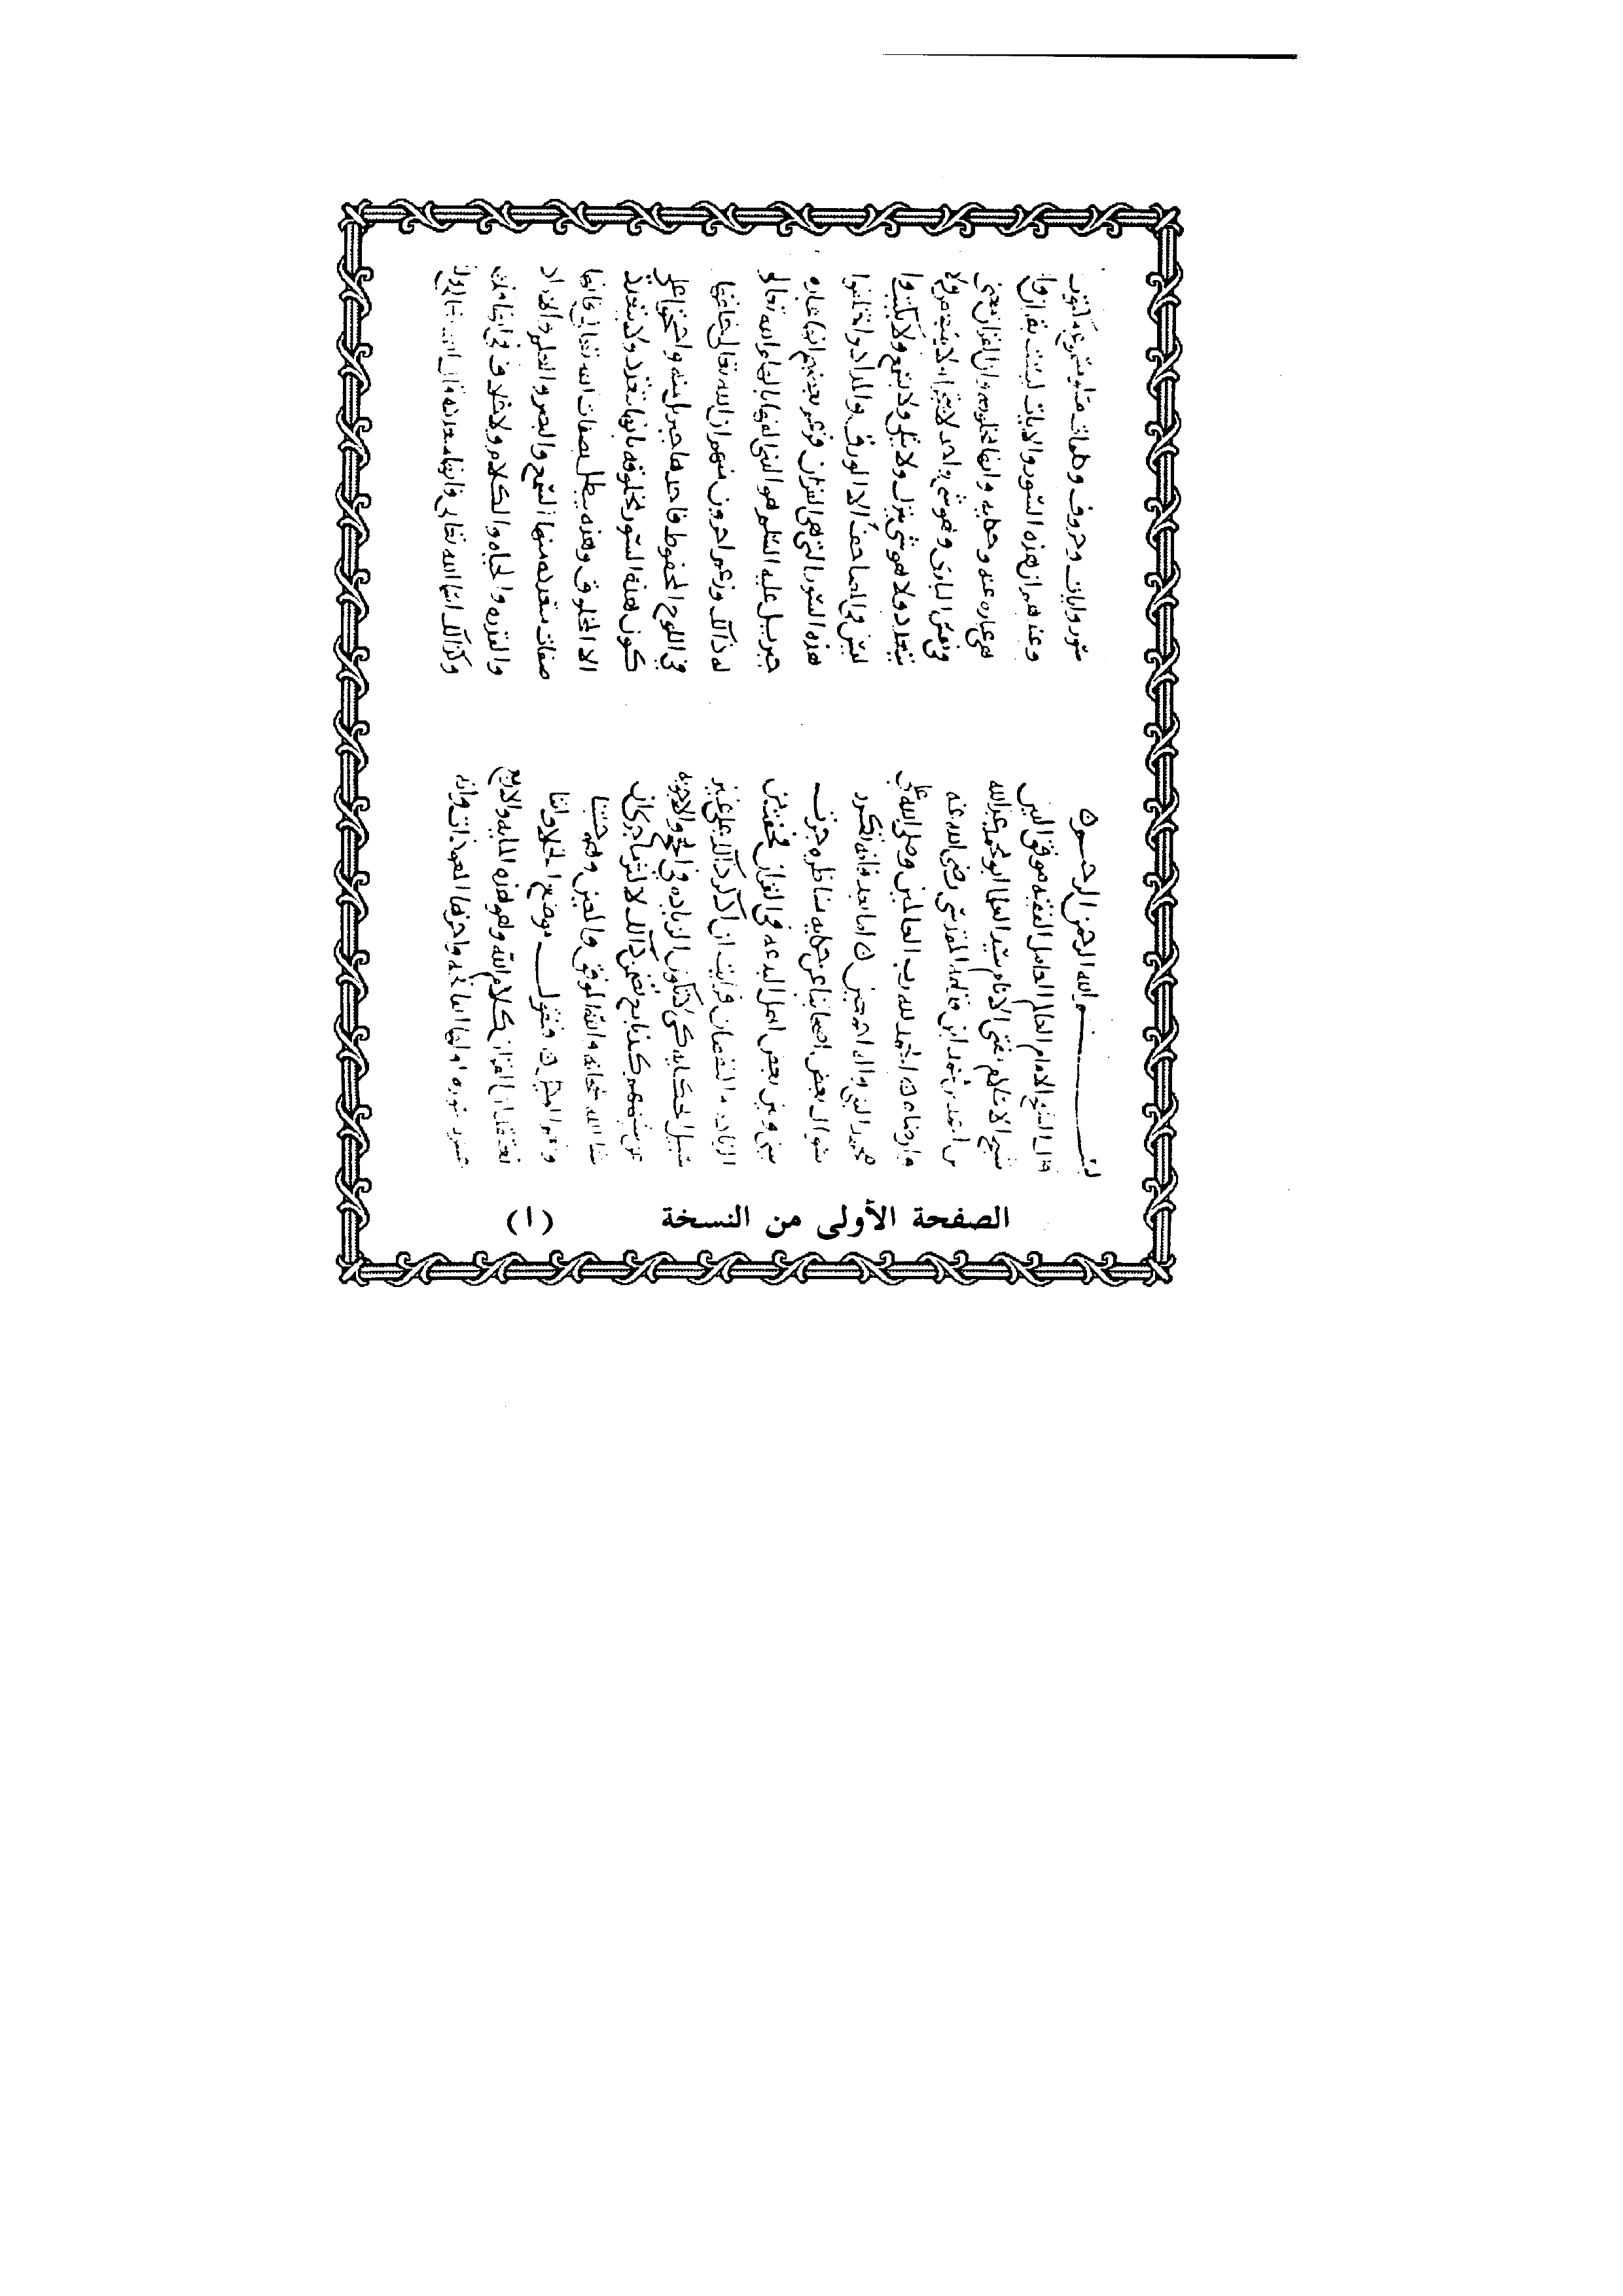 بسم الله الرحمن الرحيم
قال الشيخ الامام العالم العامل الفقيه موفق الدين
شيخ الاسلام مفتي الانام سيد العلما ابو محمد عبد الله
بن احمد بن محمد ابن قدامه المقدسي رضي الله عنه
وارضاه الحمد لله رب العالمين وصلى الله على
محمد النبي واله اجمعين اما بعد فانه تكرر
سوال بعض اصحابنا عن حكايه مناظره جرت
بيني وبين بعض اهل البدعه في القران فخفت من
الزياده والنقصان فرايت ان اذكر ذلك على غير
سبيل الحكايه كي لا تكون الزياده في الحجج والاجوبه
عن شبههم كذبا مع تضمن ذلك لاكثر ما جرى ان
شا الله سبحانه والله الموفق والمعين وهو حسبنا
ونعم الوكيل فنقول موضع الخلاف اننا
نعتقد ان القران كلام الله وهو هذه المايه والاربع
عشره سوره اولها الفاتحه واخرها المعوذات وانه
سور وايات وحروف وكلمات متلو مسموع مكتوب
وعندهم ان هذه السور والايات ليست بقران وانما
هي عباره عنه وحكايه وانها مخلوقه وان القران معنى
في نفس الباري وهو شي واحد لا يتجزا ولا يتبعض ولا
يتعدد ولا هو شي ينزل ولا يتلى ولا يسمع ولا يكتب وانه
ليس في المصاحف الا الورق والمداد واختلفوا
هذه السور التي هي القران فزعم بعضهم انها عباره
جبريل عليه السلم هو الذي الفها بالهام الله تعالى
له ذلك وزعم اخرون منهم ان الله تعالى خلقها
في اللوح المحفوظ فاخذها جبريل منه واحتجوا على
كون هذه السور مخلوقه بانها تتعدد ولا يتعدد
الا المخلوق وهذه يبطل بصفات الله تعالى فانها
صفات متعدده منها السمع والبصر والعلم والاراده
والقدره والحياه والكلام ولا خلاف في انها قديمه
وكذلك اسما الله تعالى فانها متعدده قال الله تعالى
الصفحة الأولى من النسخة (أ)